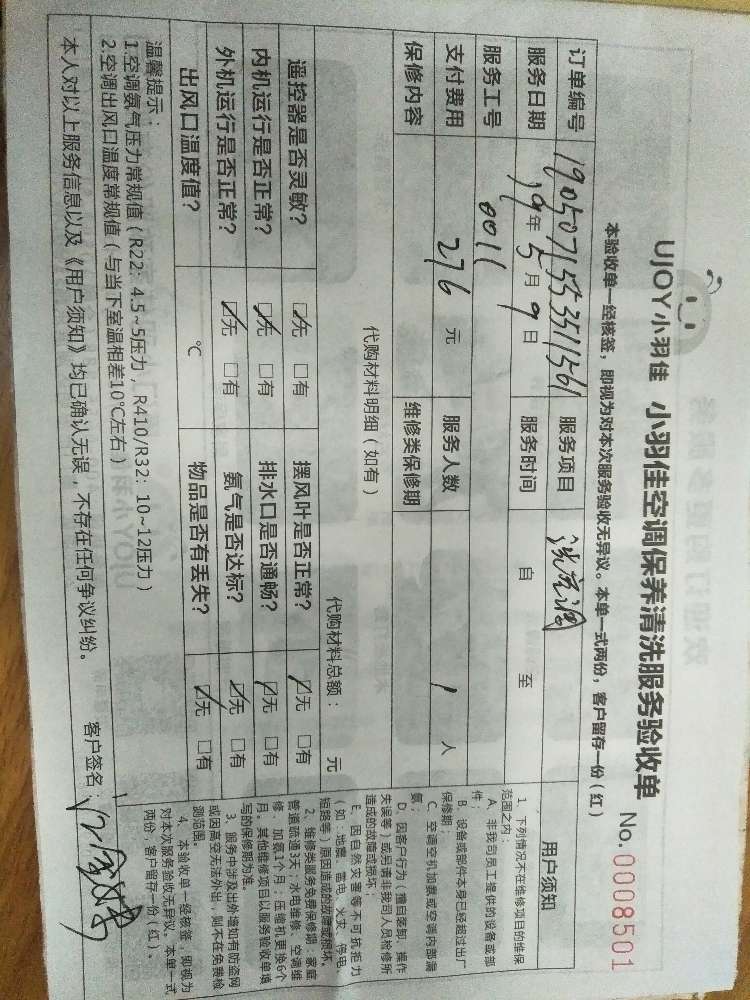 UJOY小羽佳 小羽佳空调保养清洗服务验收单 No.0008501
本验收单一经核签，即视为对本次服务验收无异议。本单一式两份，客户留存一份（红）
订单编号 190507155351156 服务项目 洗空调
服务日期 19年5月9日 服务时间 自 至
服务工号 0011
支付费用 276 元 服务人数 1 人
保修内容 维修类保修期
代购材料明细（如有）
代购材料总额： 元
遥控器是否灵敏？ ☑无 □有 摆风叶是否正常？ ☑无 □有
内机运行是否正常？ ☑无 □有 排水口是否通畅？ ☑无 □有
外机运行是否正常？ ☑无 □有 氨气是否达标？ ☑无 □有
出风口温度值？ ℃ 物品是否有丢失？ ☑无 □有
温馨提示：
1.空调氨气压力常规值（R22：4.5~5压力，R410/R32：10~12压力）
2.空调出风口温度常规值（与当下室温相差10℃左右）
本人对以上服务信息以及《用户须知》均已确认无误，不存在任何争议纠纷。 客户签名：
用户须知
1、下列情况不在维修项目的维保
范围之内：
A、非我司员工提供的设备或部
件；
B、设备或部件本身已经超过出厂
保修期；
C、空调空气加氨或空调内部漏
氨；
D、因客户行为（擅自拆卸、操作
失误等）或另请非我司人员检修所
造成的故障或损坏；
E、因自然灾害等不可抗拒力
（如：地震、雷电、火灾、停电、
短路等）原因造成的故障或损坏。
2、维修类服务免费保修期：家庭
管道疏通3天；水电维修、空调维
修、加氨1个月；压缩机更换6个
月。其他维修项目以服务验收单填
写的保修期为准。
3、服务中涉及出外墙如有防盗网
或因高空无法外出，则不在免费检
测范围。
4、本验收单一经核签，即视为
对本次服务验收无异议。本单一式
两份，客户留存一份（红）。